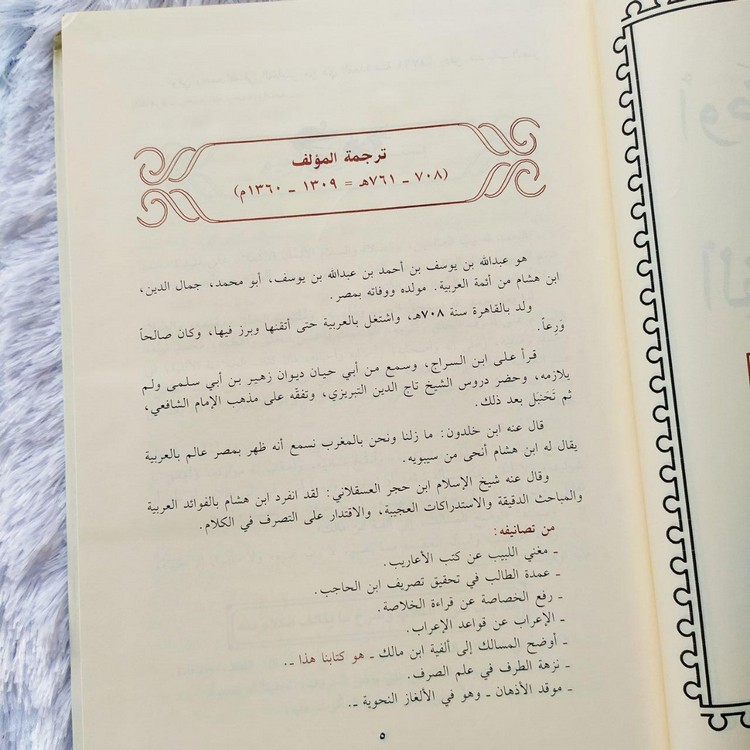 ترجمة المؤلف
(٧٠٨ ـ ٧٦١هـ = ١٣٠٩ ـ ١٣٦٠م)
هو عبدالله بن يوسف بن أحمد بن عبدالله بن يوسف، أبو محمد، جمال الدين،
ابن هشام من أئمة العربية. مولده ووفاته بمصر.
ولد بالقاهرة سنة ٧٠٨هـ، واشتغل بالعربية حتى أتقنها وبرز فيها، وكان صالحاً
وَرِعاً.
قرأ على ابن السراج، وسمع من أبي حيان ديوان زهير بن أبي سلمى ولم
يلازمه، وحضر دروس الشيخ تاج الدين التبريزي، وتفقّه على مذهب الإمام الشافعي،
ثم تَحَنبَل بعد ذلك.
قال عنه ابن خلدون: ما زلنا ونحن بالمغرب نسمع أنه ظهر بمصر عالم بالعربية
يقال له ابن هشام أنحى من سيبويه.
وقال عنه شيخ الإسلام ابن حجر العسقلاني: لقد انفرد ابن هشام بالفوائد العربية
والمباحث الدقيقة والاستدراكات العجيبة، والاقتدار على التصرف في الكلام.
من تصانيفه:
ـ مغني اللبيب عن كتب الأعاريب.
ـ عمدة الطالب في تحقيق تصريف ابن الحاجب.
ـ رفع الخصاصة عن قراءة الخلاصة.
ـ الإعراب عن قواعد الإعراب.
ـ أوضح المسالك إلى ألفية ابن مالك ـ هو كتابنا هذا ـ.
ـ نزهة الطرف في علم الصرف.
ـ موقد الأذهان ـ وهو في الألغاز النحوية ـ.
٥